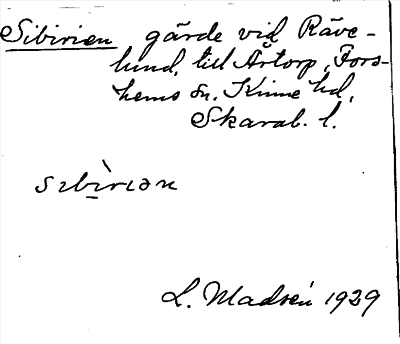 Sibirien gärde vid Räve-
lund, till Årtorp, Fors-
hems sn. Kinne hd,
Skarab. l.
sıbìrıən
L. Madsén 1929